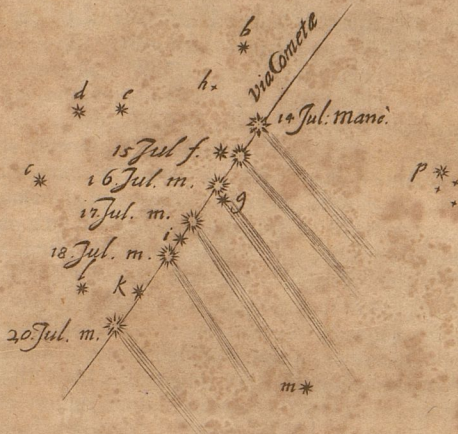 b
via Cometæ
d
e
h
14 Jul: manè.
15 Jul f.
c
16 Jul. m.
p
g
17 Jul. m.
i
18 Jul. m.
l
k
20. Jul. m.
m